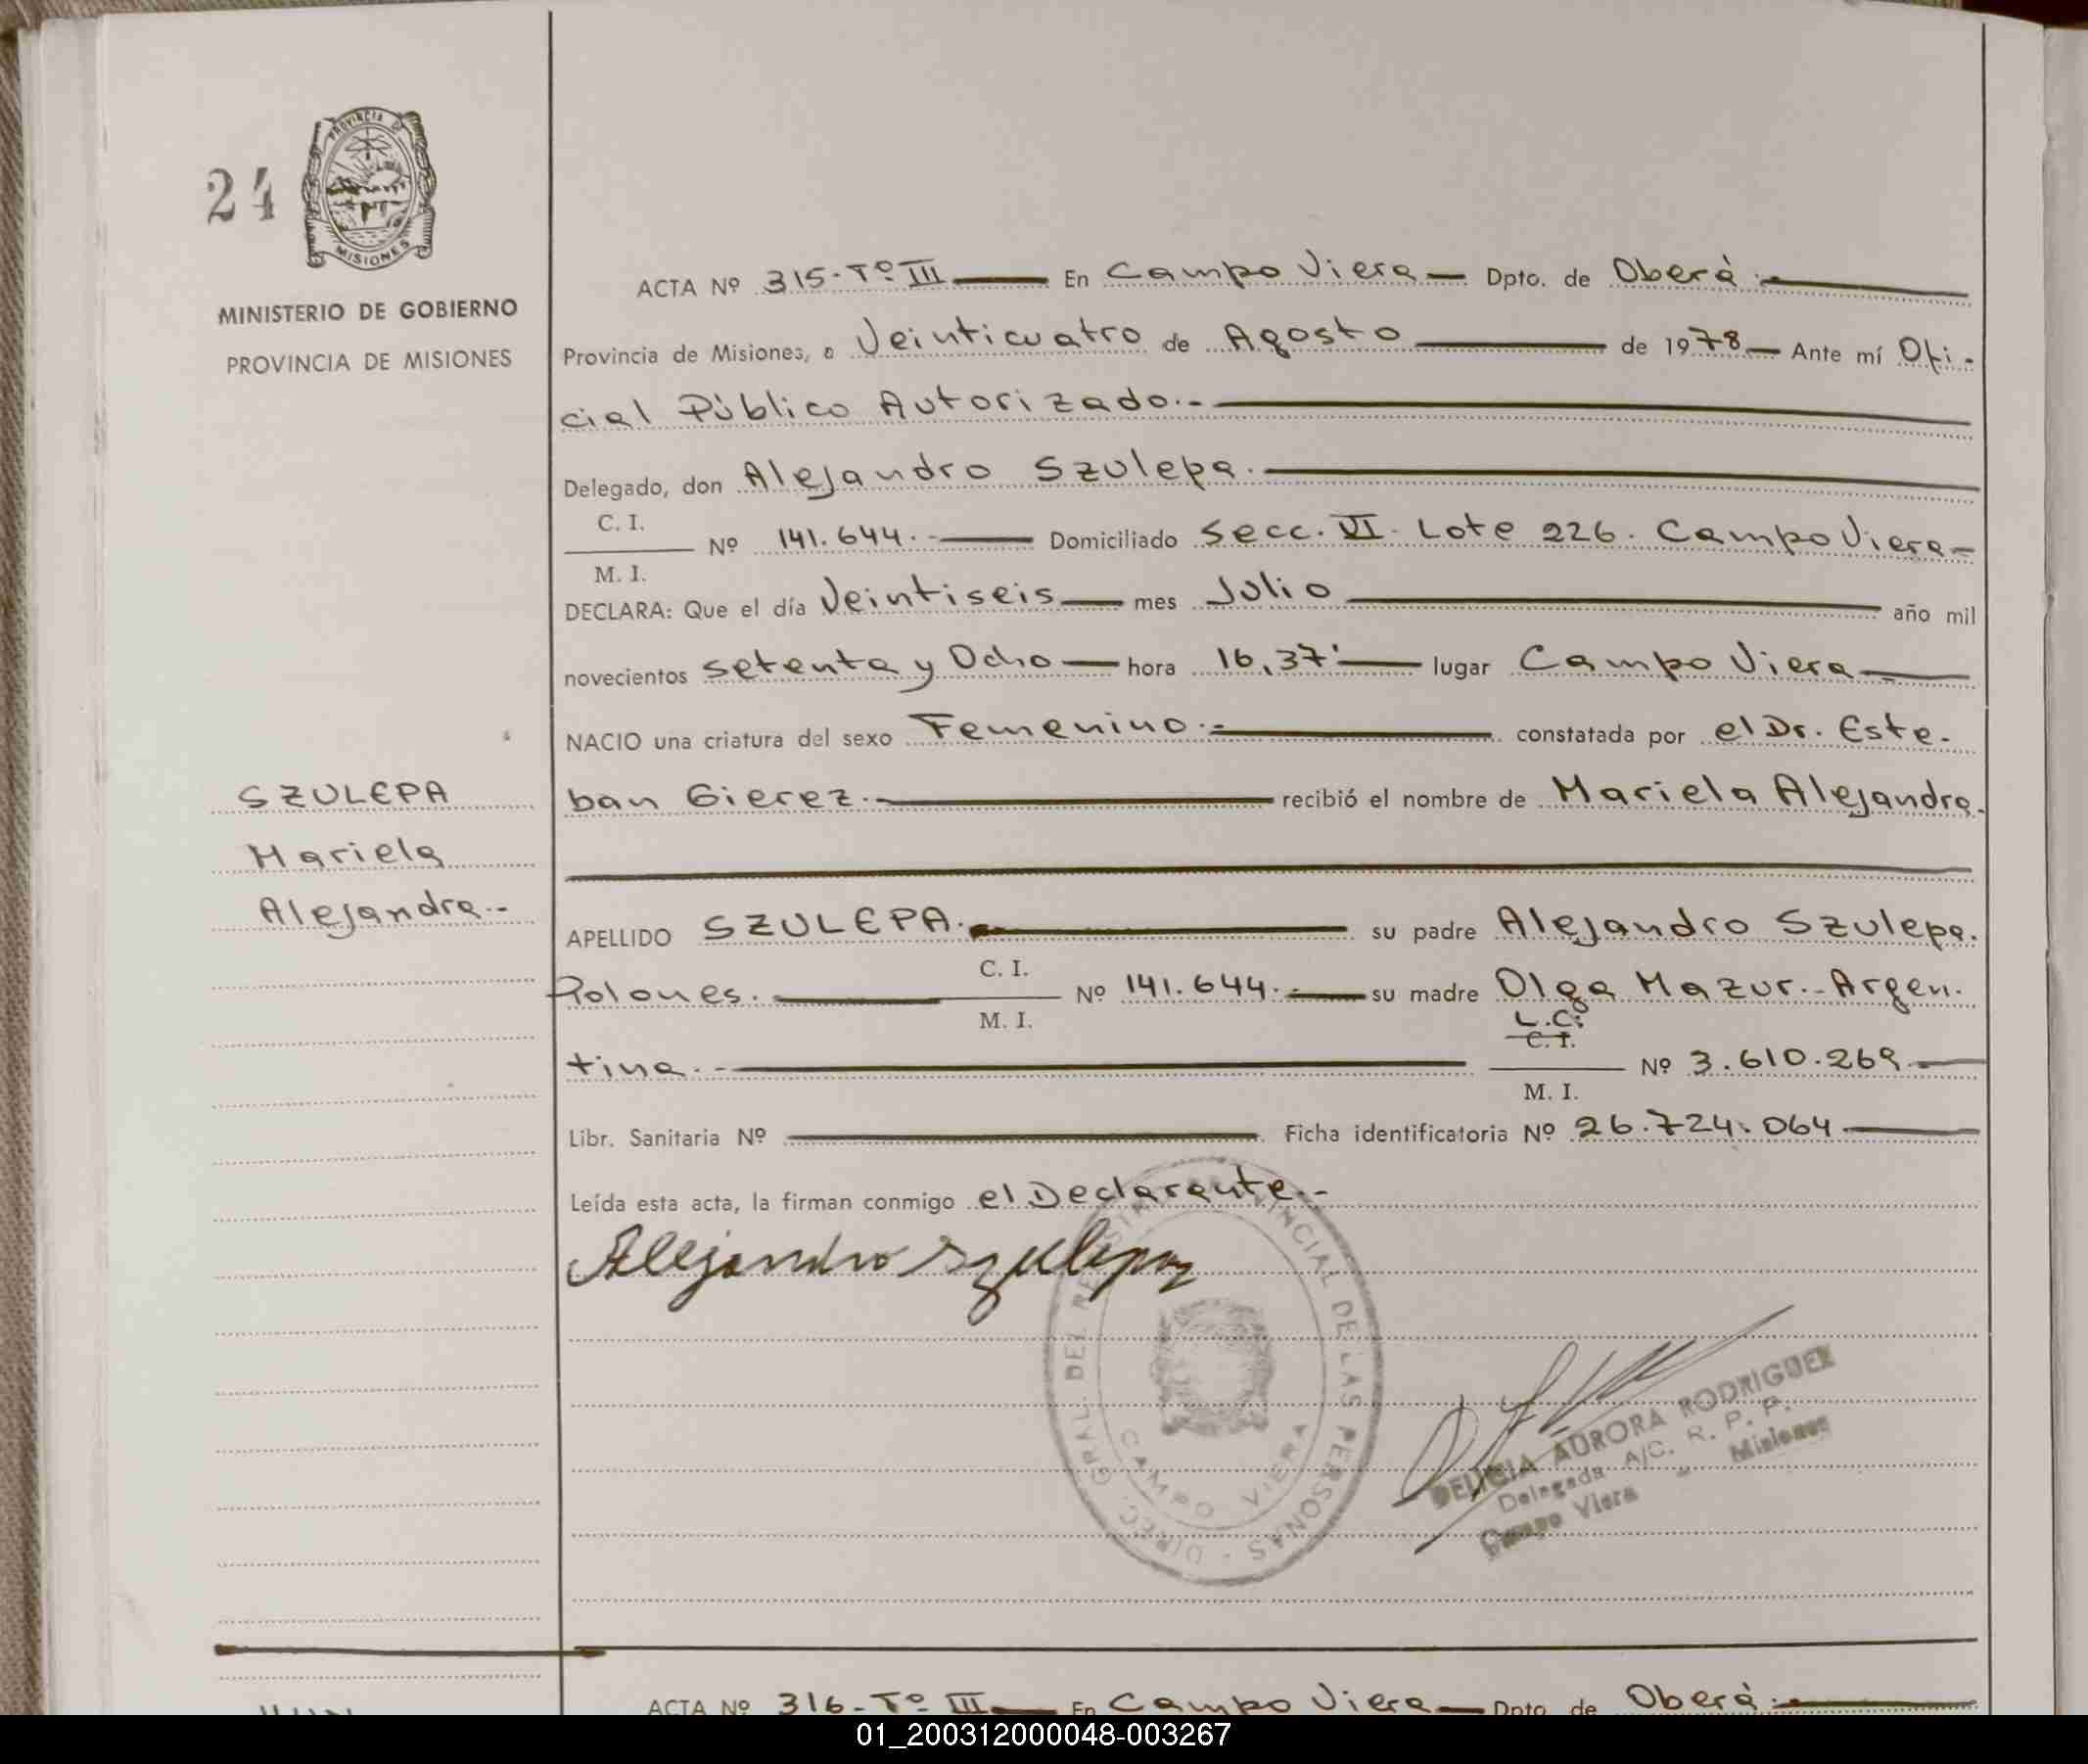 24
PROVINCIA DE
MISIONES
MINISTERIO DE GOBIERNO
PROVINCIA DE MISIONES
SZULEPA
Mariela
Alejandra.-
ACTA Nº 315-Tº III — En Campo Viera — Dpto. de Oberá.
Provincia de Misiones, a Veinticuatro de Agosto — de 1978 — Ante mí Ofi-
cial Público Autorizado.-
Delegado, don Alejandro Szulepa.
C. I.
Nº 141.644.- Domiciliado Secc. VI - Lote 226. Campo Viera-
M. I.
DECLARA: Que el día Veintiseis — mes Julio — año mil
novecientos setenta y Ocho — hora 16,37' — lugar Campo Viera —
NACIO una criatura del sexo Femenino.- constatada por el Dr. Este-
ban Gierez.- recibió el nombre de Mariela Alejandra.
APELLIDO SZULEPA.- su padre Alejandro Szulepa.
C. I.
Polones. — Nº 141.644.- su madre Olga Mazur.- Argen-
M. I.
L.C.
C. I.
tina.- Nº 3.610.269 —
M. I.
Libr. Sanitaria Nº — Ficha identificatoria Nº 26.724.064 —
Leída esta acta, la firman conmigo el Declarante.-
Alejandro Szulepa
DIREC. GRAL. DEL REGISTRO PROVINCIAL DE LAS PERSONAS -
CAMPO VIERA
DELICIA AURORA RODRIGUEZ
Delegada A/C. R. P. P.
Campo Viera - Misiones
ACTA Nº 316-Tº III — En Campo Viera — Dpto. de Oberá.-
01_200312000048-003267